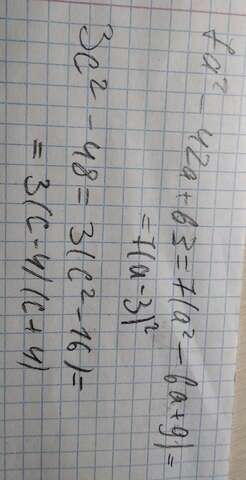 7a² - 42a + 63 = 7(a² - 6a + 9) =
= 7(a - 3)²
3c² - 48 = 3(c² - 16) =
= 3(c - 4)(c + 4)